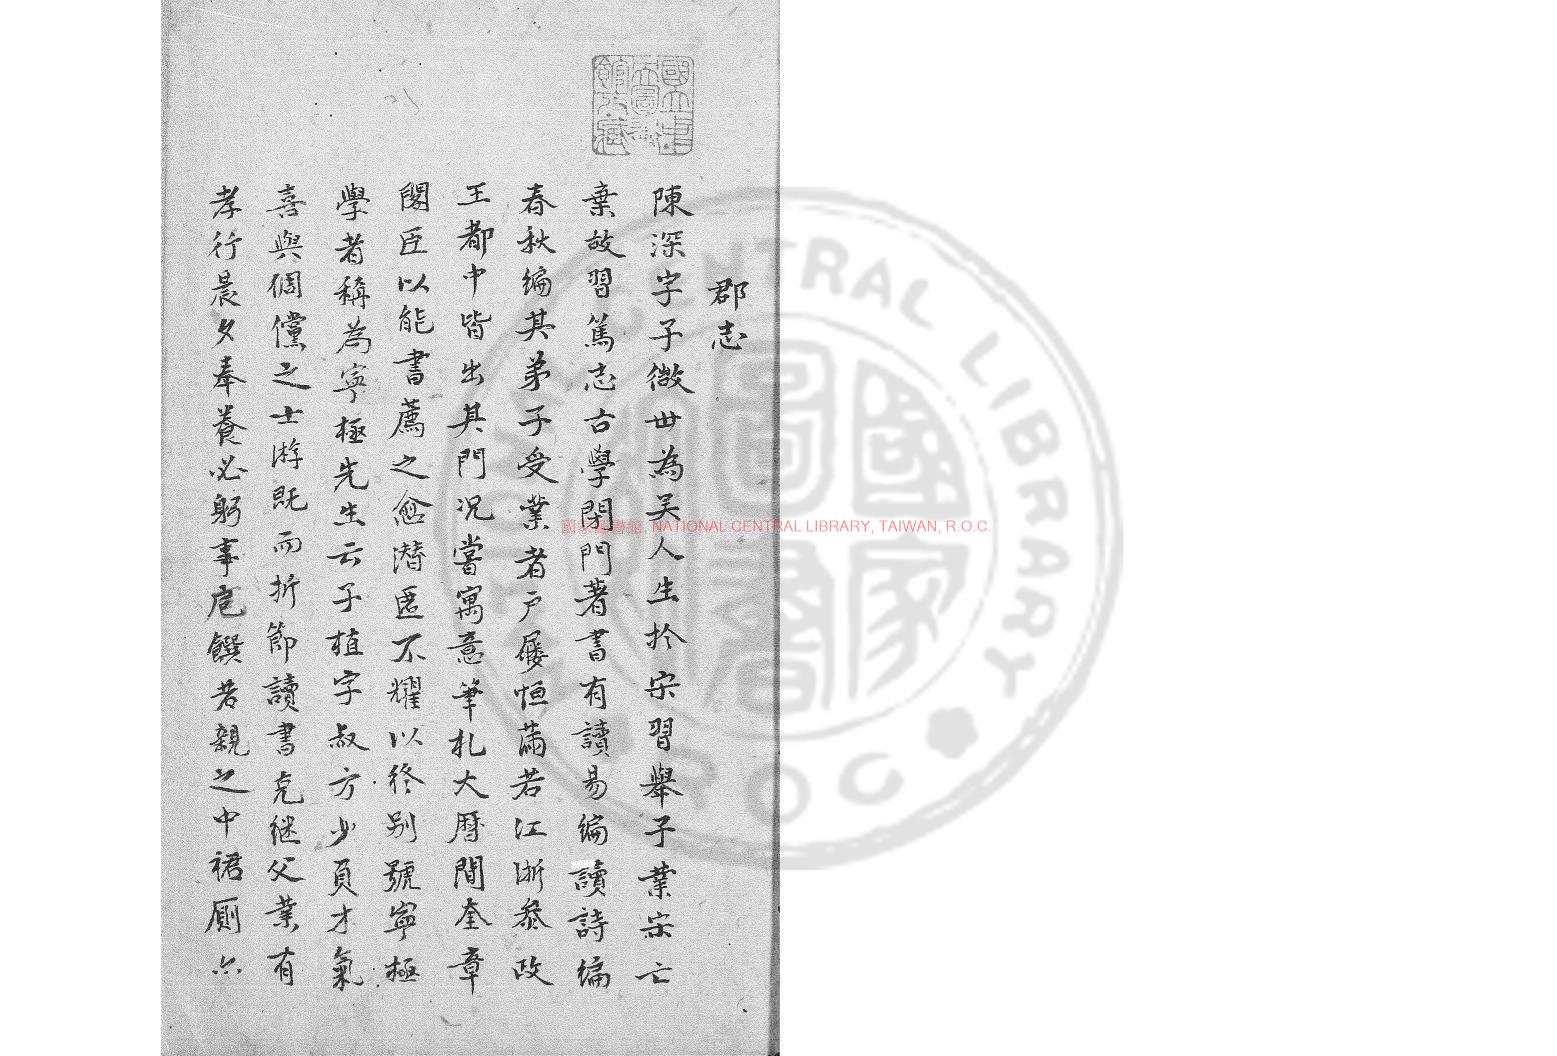 郡志
陳深字子微世為吴人生於宋習舉子業宋亡
棄故習篤志古學閉門著書有讀易編讀詩編
春秋編其弟子受業者戶屨恒滿若江浙叅政
王都中皆出其門况嘗寓意筆札大曆間奎章
閣臣以能書薦之愈潛匿不耀以終别號寧極
學者稱為寧極先生云子植字叔方少負才氣
喜與倜儻之士游既而折節讀書克継父業有
孝行晨夕奉養必躬事庖饌若親之中裙厠亦
國家圖書館, NATIONAL CENTRAL LIBRARY, TAIWAN, R.O.C.
NATIONAL CENTRAL LIBRARY
ROC
國家圖書館
國立中央圖書館所藏